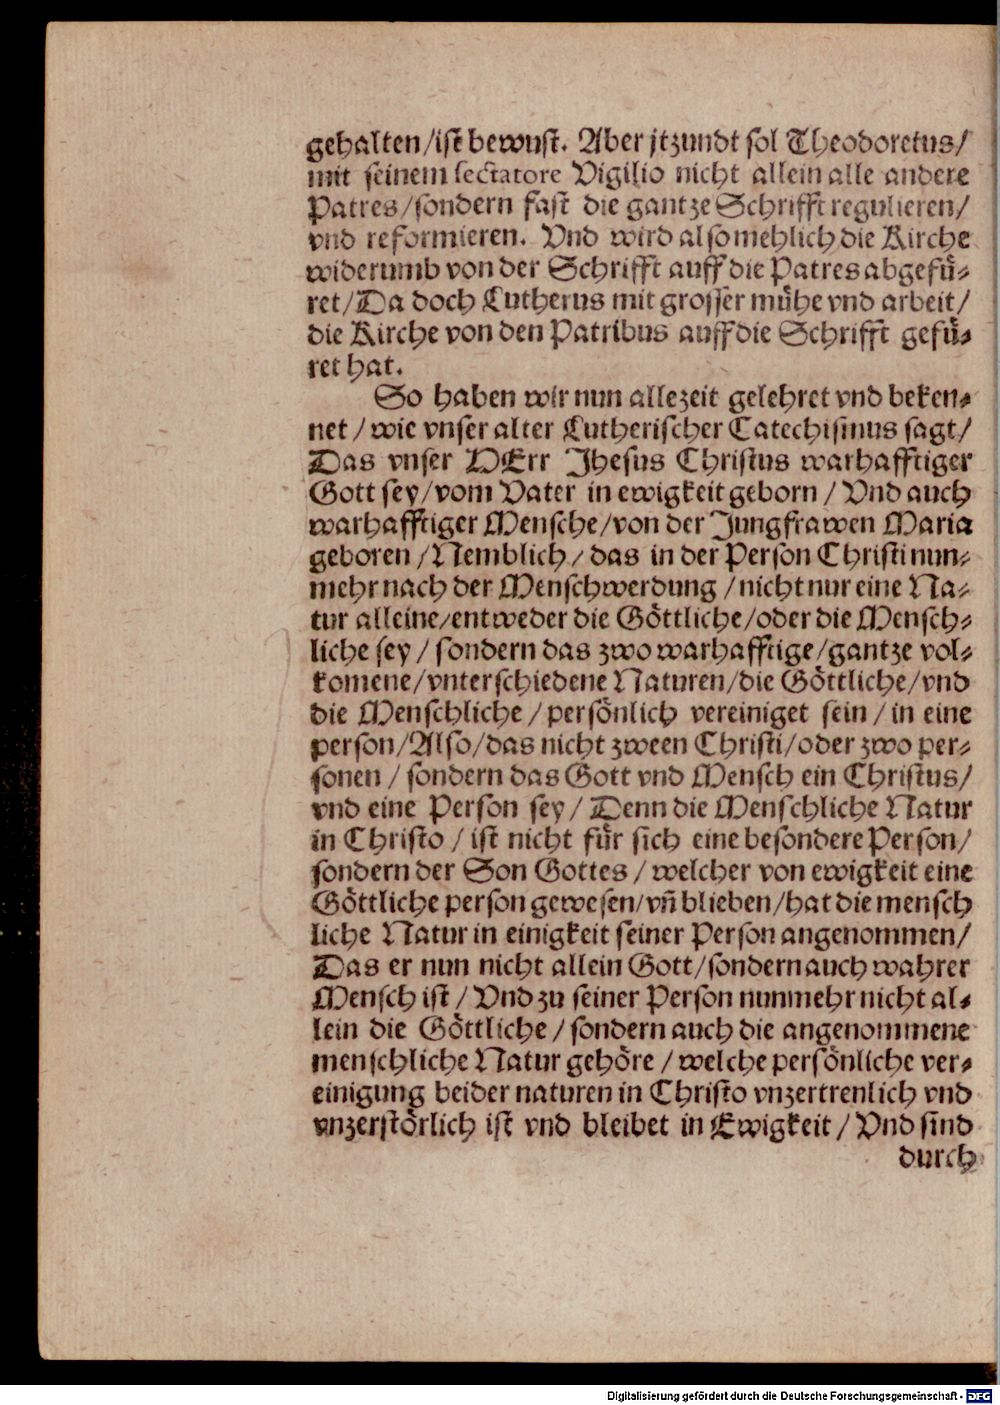 gehalten/ist bewust. Aber jtzundt sol Theodoretus/
mit seinem sectatore Vigilio nicht allein alle andere
Patres/sondern fast die gantze Schrifft regulieren/
vnd reformieren. Vnd wird also mehlich die Kirche
widerumb von der Schrifft auff die Patres abgefü-
ret/Da doch Lutherus mit grosser mühe vnd arbeit/
die Kirche von den Patribus auff die Schrifft gefü-
ret hat.
So haben wir nun allezeit gelehret vnd beken-
net / wie vnser alter Lutherischer Catechismus sagt/
Das vnser HErr Jhesus Christus warhafftiger
Gott sey/vom Vater in ewigkeit geborn / Vnd auch
warhafftiger Mensche/von der Jungfrawen Maria
geboren / Nemblich / das in der Person Christi nun-
mehr nach der Menschwerdung / nicht nur eine Na-
tur alleine/entweder die Göttliche/oder die Mensch-
liche sey / sondern das zwo warhafftige/gantze vol-
komene/vnterschiedene Naturen/die Göttliche/vnd
die Menschliche / persönlich vereiniget sein / in eine
person/Also/das nicht zween Christi/oder zwo per-
sonen / sondern das Gott vnd Mensch ein Christus/
vnd eine Person sey / Denn die Menschliche Natur
in Christo / ist nicht für sich eine besondere Person/
sondern der Son Gottes / welcher von ewigkeit eine
Göttliche person gewesen/vñ blieben/hat die mensch
liche Natur in einigkeit seiner Person angenommen/
Das er nun nicht allein Gott/sondern auch wahrer
Mensch ist / Vnd zu seiner Person nunmehr nicht al-
lein die Göttliche / sondern auch die angenommene
menschliche Natur gehöre / welche persönliche ver-
einigung beider naturen in Christo vnzertrenlich vnd
vnzerstörlich ist vnd bleibet in Ewigkeit / Vnd sind
durch
Digitalisierung gefördert durch die Deutsche Forschungsgemeinschaft - DFG